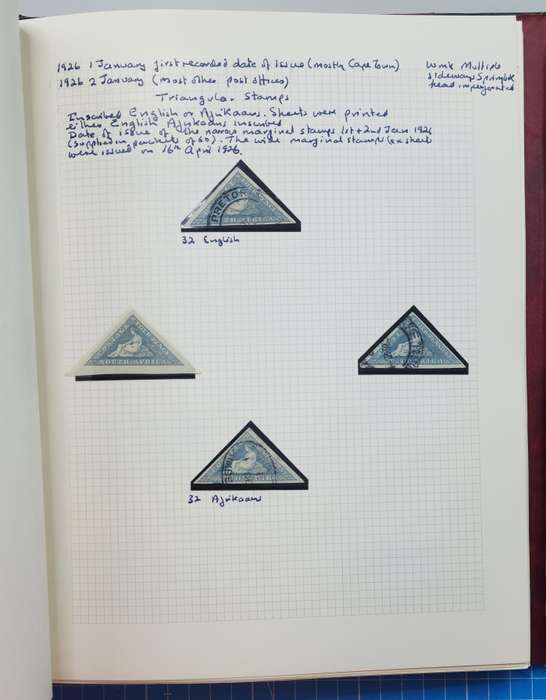 1926 1 January first recorded date of issue (mostly Cape Town)
1926 2 January (most other post offices)
Wmk Multiple
sideways Springbok
head imperforated
Triangular Stamps
Inscribed English or Afrikaans. Sheets were printed
either English Afrikaans inscribed
Date of issue of the narrow marginal stamps 1st + 2nd Jan 1926
(supplied in packets of 60). The wide marginal stamps (ex sheets
were issued on 16th April 1926.
PRETOR
32 English
SOUTH AFRICA
32 Afrikaans